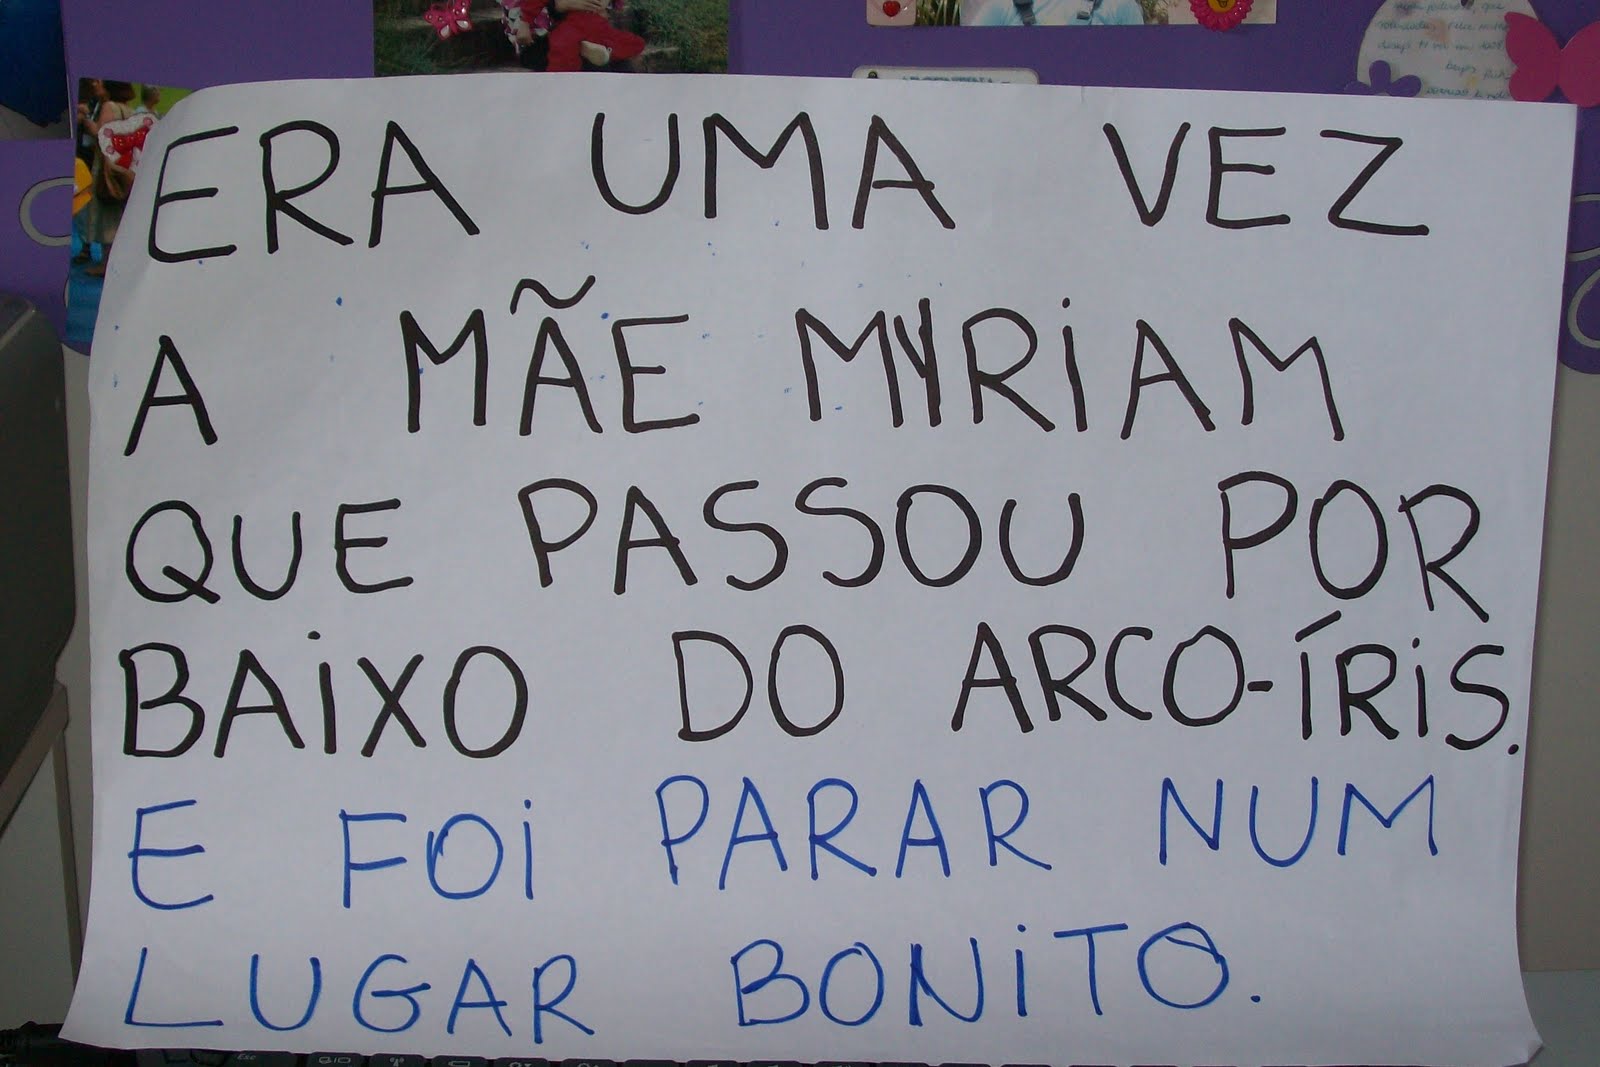 ERA UMA VEZ
A MÃE MYRIAM
QUE PASSOU POR
BAIXO DO ARCO-ÍRIS.
E FOI PARAR NUM
LUGAR BONITO.
Esc